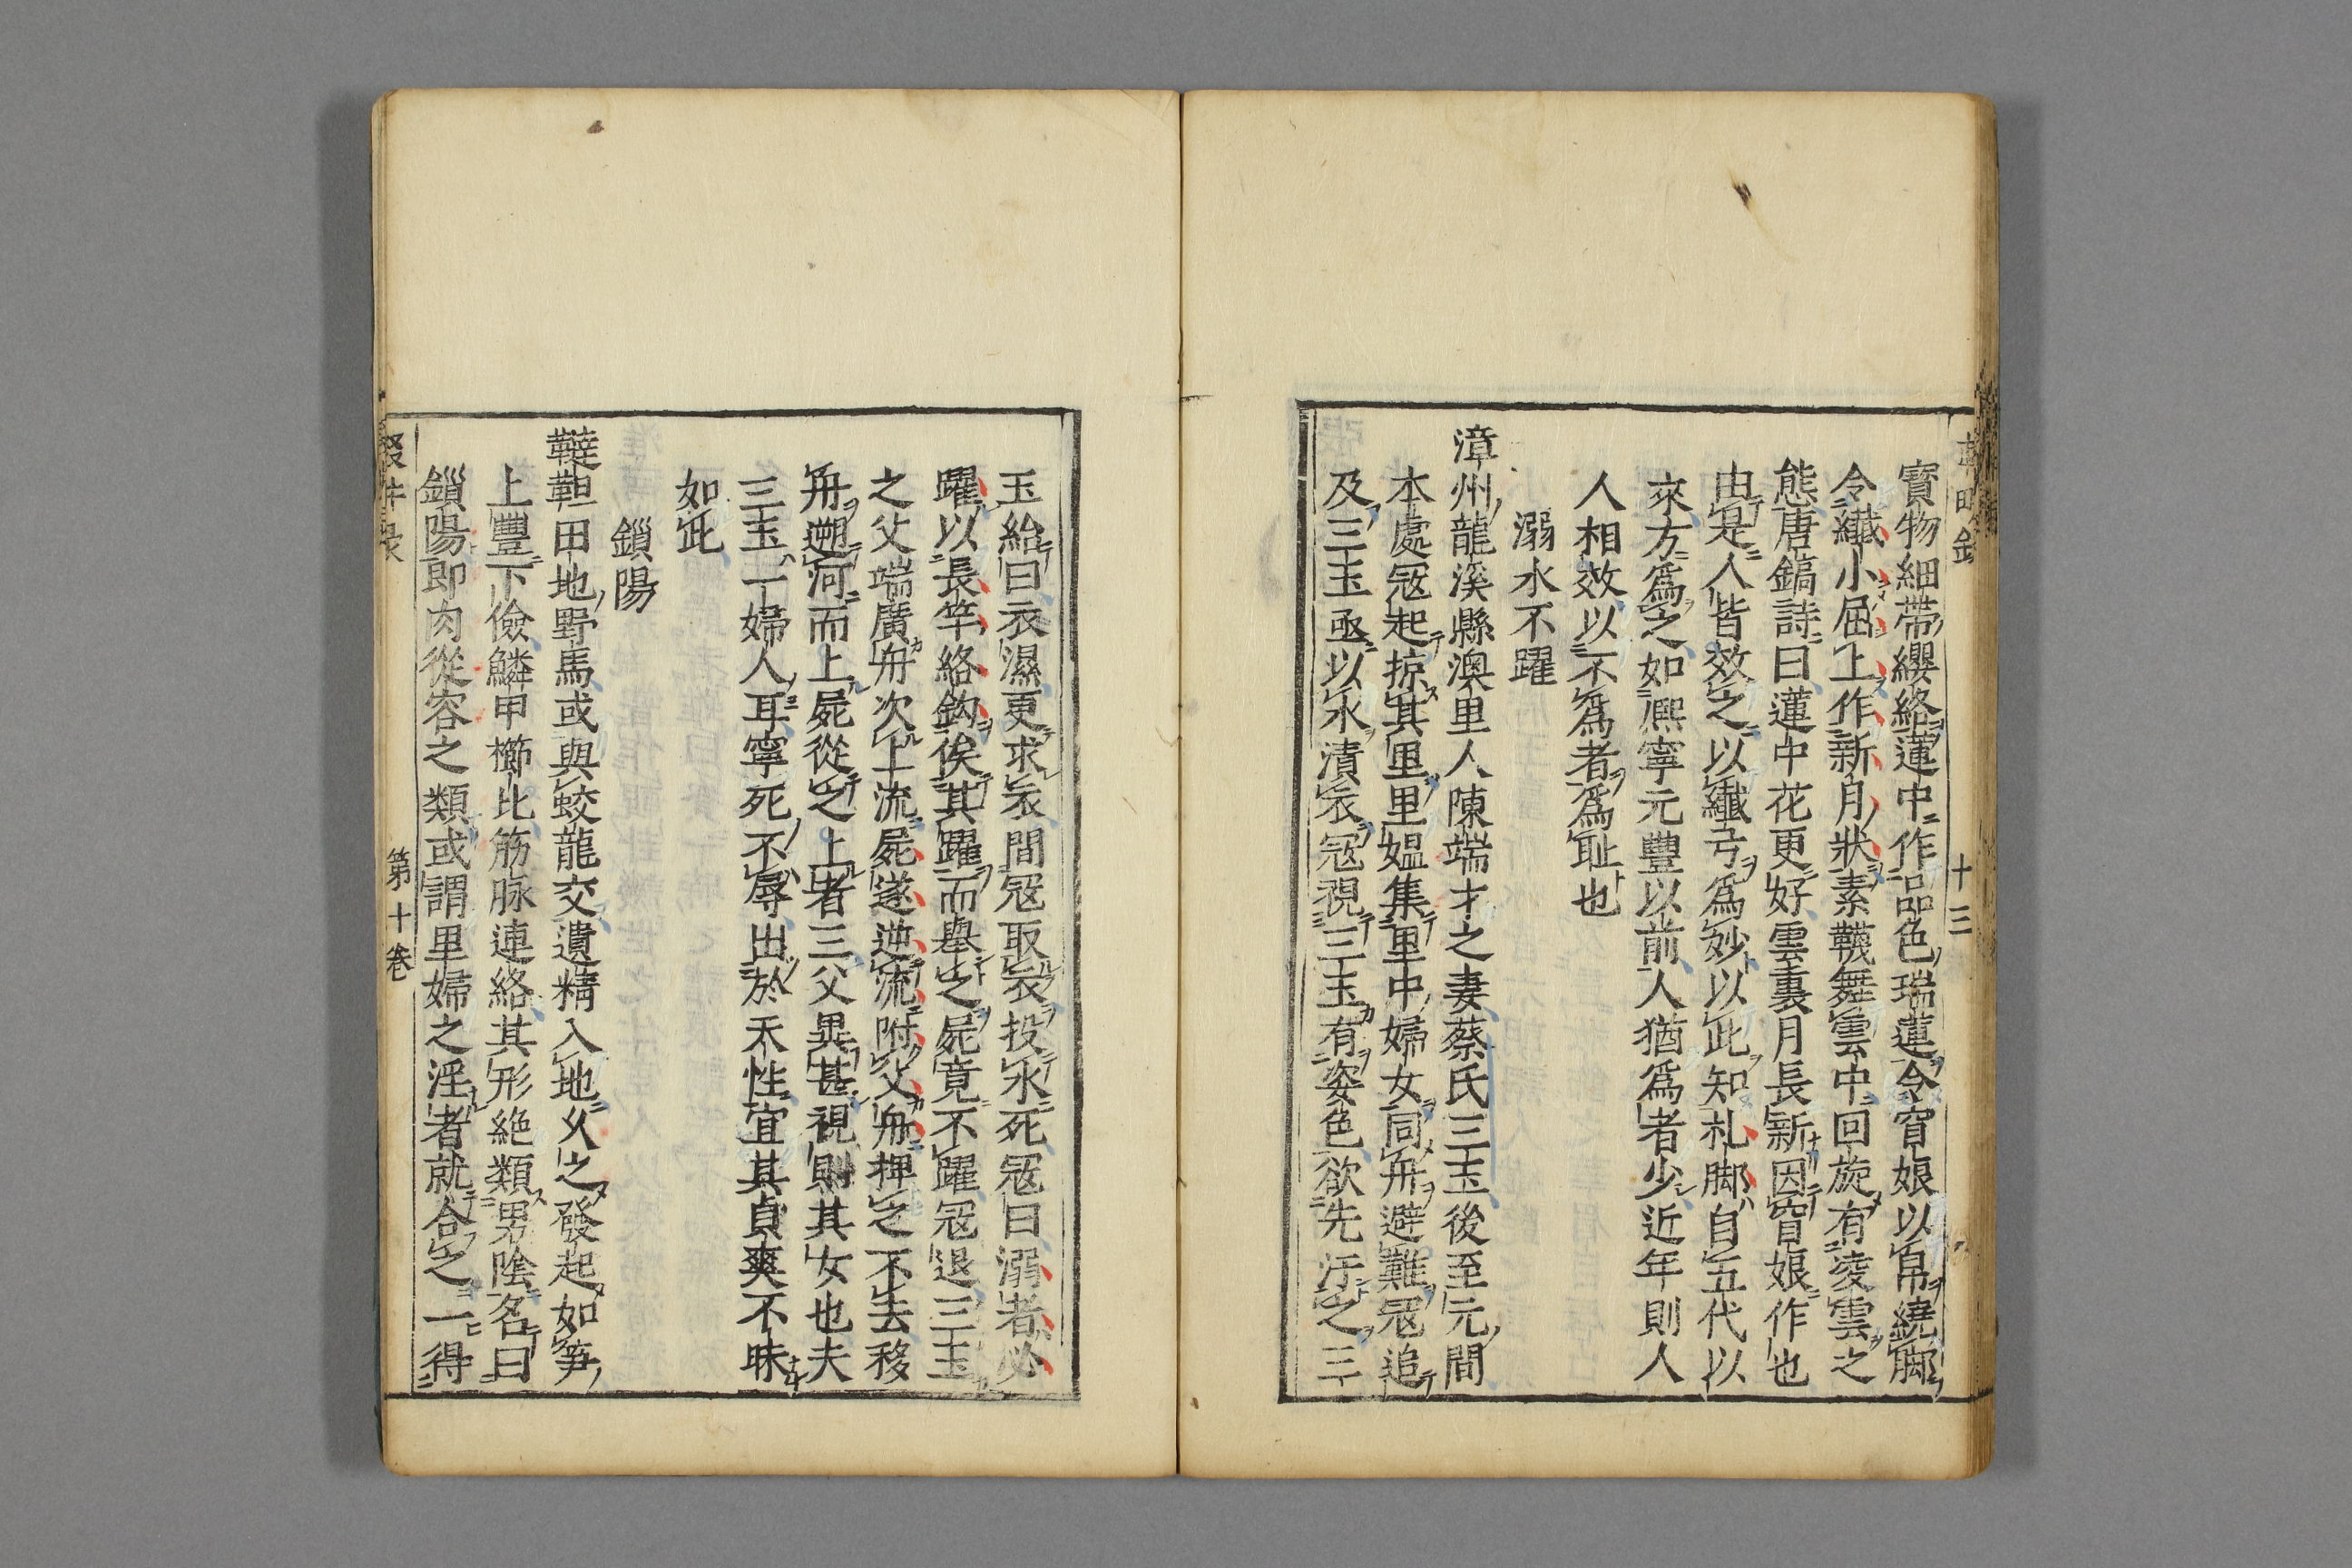 寳物細帶纓絡蓮中作品色瑞蓮令窅娘以帛繞脚
令纖小屈上作新月狀素韈舞雲中回旋有凌雲之
態唐鎬詩曰蓮中花更好雲裏月長新因窅娘作也
由是人皆效之以纖弓爲妙以此知札脚自五代以
來方爲之如凞寧元豐以前人猶爲者少近年則人
人相效以不爲者爲耻也
溺水不躍
漳州龍溪縣澳里人陳端才之妻蔡氏三玉後至元間
本處寇起掠其里里媼集里中婦女同舟避難寇追
及三玉亟以水漬衣寇視三玉有姿色欲先汙之三
十三
玉紿曰衣濕更求衣間寇取衣投水死寇曰溺者必
躍以長竿絡鈎俟其躍而舉之屍竟不躍寇退三玉
之父端廣舟次上流屍遂逆流附父舟押之不去移
舟遡河而上屍從之上者三父異甚視則其女也夫
三玉一婦人耳寧死不辱出於天性宜其貞爽不昧
如此
鎻陽
韃靼田地野馬或與蛟龍交遺精入地乆之發起如笋
上豐下儉鱗甲櫛比筋脉連絡其形絶類男陰名曰
鎻陽即肉從容之類或謂里婦之淫者就合之一得
第十卷